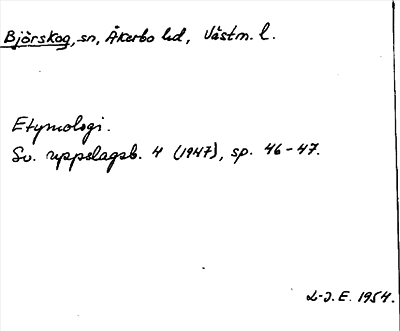 Björskog, sn, Åkerbo hd, Västm. l.
Etymologi.
Sv. uppslagsb. 4 (1947), sp. 46-47.
L-J. E. 1954.